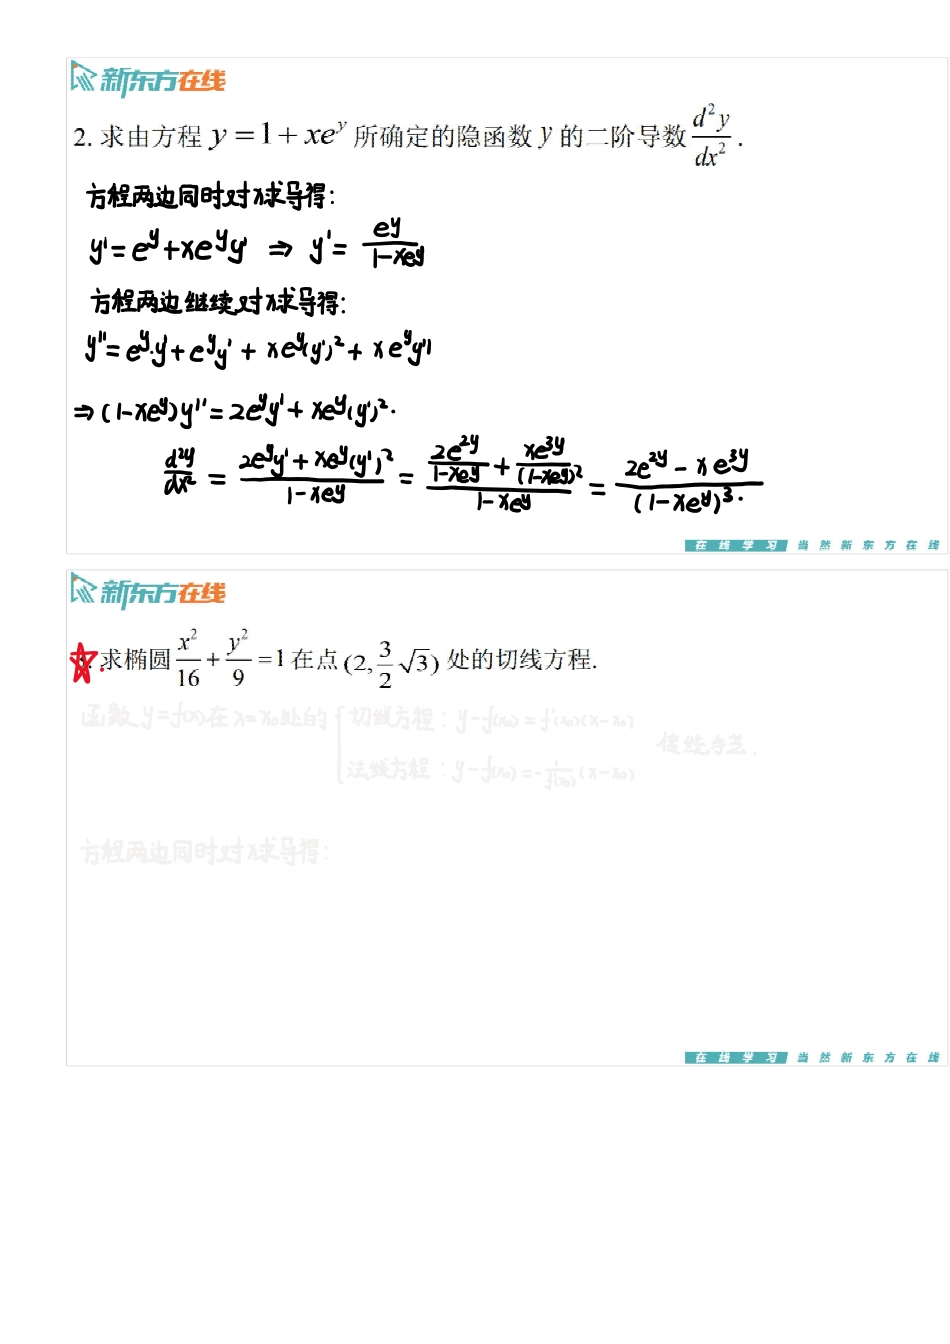 新东方在线
2. 求由方程 y = 1 + xe^y 所确定的隐函数 y 的二阶导数 d²y/dx² .
方程两边同时对x求导得:
y' = e^y + xe^y y' ⇒ y' = e^y/(1-xe^y)
方程两边继续对x求导得:
y'' = e^y·y' + e^y y' + xe^y(y')² + xe^y y''
⇒ (1-xe^y)y'' = 2e^y y' + xe^y(y')².
d²y/dx² = (2e^y y' + xe^y(y')²)/(1-xe^y) = (2e^{2y}/(1-xe^y) + xe^{3y}/(1-xe^y)²)/(1-xe^y) = (2e^{2y} - xe^{3y})/(1-xe^y)³.
在线学习 当然新东方在线
新东方在线
求椭圆 x²/16 + y²/9 = 1 在点 (2, 3/2 √3) 处的切线方程.
函数 y=f(x)在 x=x₀处的 { 切线方程: y-f(x₀) = f'(x₀)(x-x₀)
法线方程: y-f(x₀) = -1/f'(x₀) (x-x₀)
方程两边同时对x求导得:
在线学习 当然新东方在线